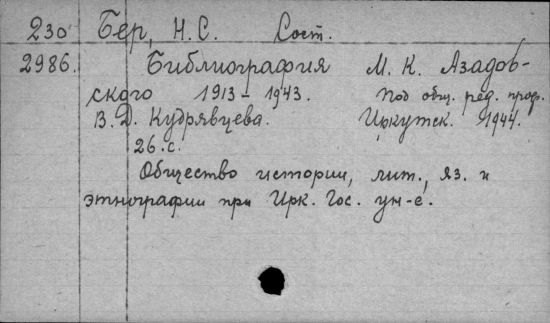 230 Бер, Н.С. Сост.
2986. Библиография М. К. Азадов-
ского 1913-1943. Под общ. ред. проф.
В. Д. Кудрявцева. Иркутск. 1944.
26.с.
Общество истории, лит., яз. и
этнографии при Ирк. Гос. ун-е.